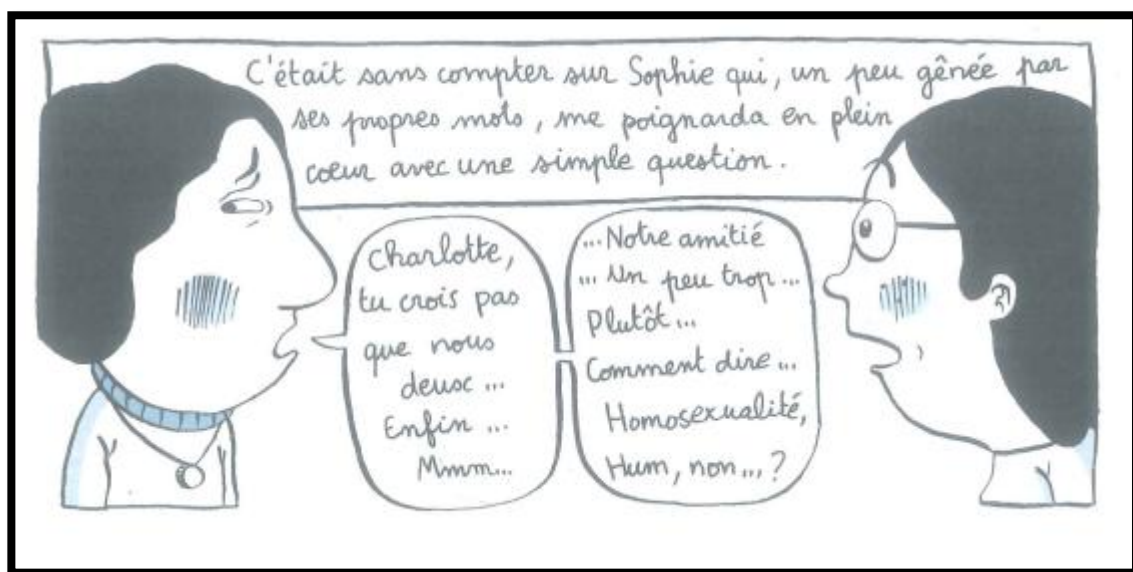 C'était sans compter sur Sophie qui, un peu gênée par
ses propres mots, me poignarda en plein
coeur avec une simple question.
Charlotte,
tu crois pas
que nous
deux...
Enfin...
Mmm...
...Notre amitié
... Un peu trop...
Plutôt...
Comment dire...
Homosexualité,
Hum, non...?